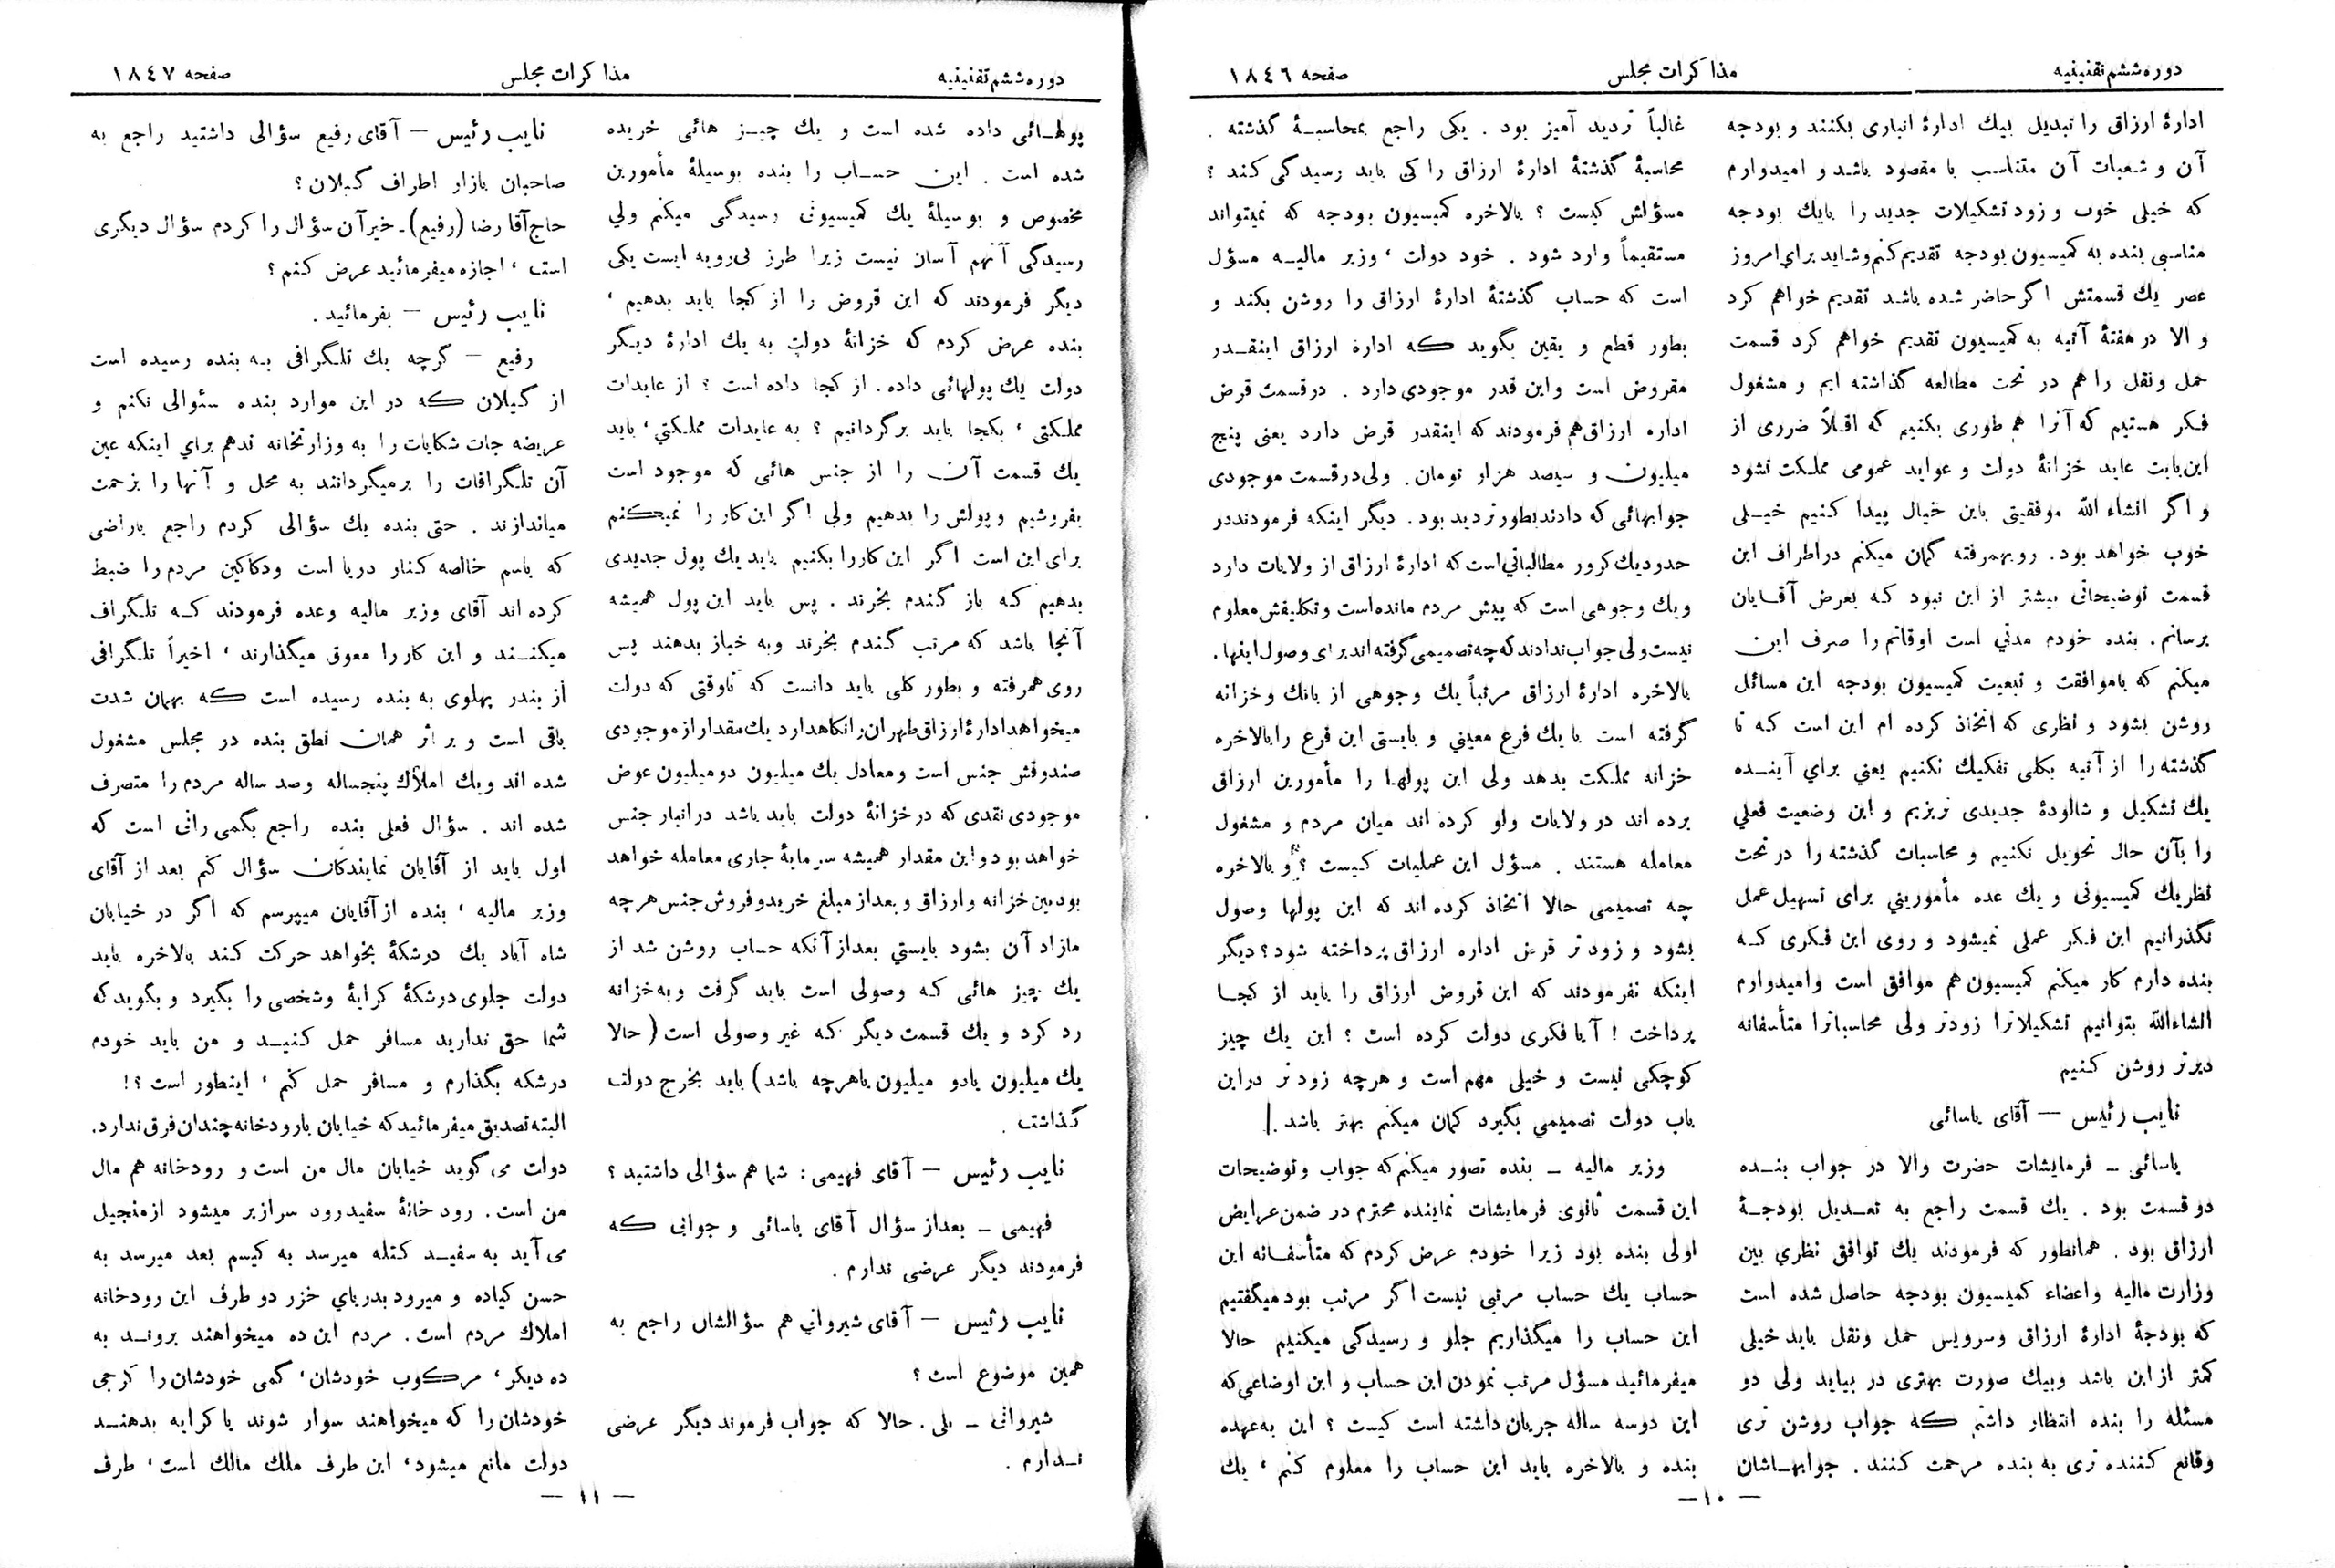 دوره ششم تقنینیه
مذاکرات مجلس
صفحه ۱۸٤٦
ادارۀ ارزاق را تبدیل بیك ادارۀ انباری بکنند و بودجه
آن و شعبات آن متناسب با مقصود باشد و امیدوارم
که خیلی خوب و زود تشکیلات جدید را بایك بودجه
مناسبی بنده به کمیسیون بودجه تقدیم کنم وشاید برای امروز
عصر یك قسمتش اگر حاضر شده باشد تقدیم خواهم کرد
و الا در هفتۀ آتیه به کمیسیون تقدیم خواهم کرد قسمت
حمل ونقل را هم در تحت مطالعه گذاشته ایم و مشغول
فکر هستیم که آنرا هم طوری بکنیم که اقلاً ضرری از
این بابت عاید خزانۀ دولت و عواید عمومی مملکت نشود
و اگر انشاء الله موفقیتی باین خیال پیدا کنیم خیلی
خوب خواهد بود. رویهمرفته گمان میکنم دراطراف این
قسمت توضیحاتی بیشتر از این نبود که بعرض آقایان
برسانم. بنده خودم مدتی است اوقاتم را صرف این
میکنم که باموافقت و تبعیت کمیسیون بودجه این مسائل
روشن بشود و نظری که اتخاذ کرده ام این است که تا
گذشته را از آتیه بکلی تفکیك نکنیم یعنی برای آینده
یك تشکیل و شالودۀ جدیدی نریزیم و این وضعیت فعلی
را بآن حال تحویل نکنیم و محاسبات گذشته را در تحت
نظر یك کمیسیونی و یك عده مأمورینی برای تسهیل عمل
نگذرانیم این فکر عملی نمیشود و روی این فکری که
بنده دارم کار میکنم کمیسیون هم موافق است وامیدوارم
انشاءالله بتوانیم تشکیلاترا زودتر ولی محاسباترا متأسفانه
دیرتر روشن کنیم
نایب رئیس — آقای یاسائی
یاسائی ـ فرمایشات حضرت والا در جواب بنده
دو قسمت بود . یك قسمت راجع به تعدیل بودجۀ
ارزاق بود . همانطور که فرمودند یك توافق نظری بین
وزارت مالیه واعضاء کمیسیون بودجه حاصل شده است
که بودجۀ ادارۀ ارزاق وسرویس حمل ونقل باید خیلی
کمتر از این باشد وبیك صورت بهتری در بیاید ولی دو
مسئله را بنده انتظار داشتم که جواب روشن تری
وقانع کننده تری به بنده مرحمت کنند . جوابهاشان
غالباً تردید آمیز بود . یکی راجع بمحاسبۀ گذشته .
محاسبۀ گذشتۀ ادارۀ ارزاق را کی باید رسیدگی کند ؟
مسؤلش کیست ؟ بالاخره کمیسیون بودجه که نمیتواند
مستقیماً وارد شود . خود دولت ، وزیر مالیه مسؤل
است که حساب گذشتۀ ادارۀ ارزاق را روشن بکند و
بطور قطع و یقین بگوید که ادارۀ ارزاق اینقدر
مقروض است واین قدر موجودی دارد . درقسمت قرض
اداره ارزاق هم فرمودند که اینقدر قرض دارد یعنی پنج
میلیون و سیصد هزار تومان. ولی در قسمت موجودی
جوابهائی که دادند بطور تردید بود. دیگر اینکه فرمودند در
حدود یك کرور مطالباتی است که ادارۀ ارزاق از ولایات دارد
ویك وجوهی است که پیش مردم مانده است وتکلیفش معلوم
نیست ولی جواب ندادند که چه تصمیمی گرفته اند برای وصول اینها.
بالاخره ادارۀ ارزاق مرتباً یك وجوهی از بانك و خزانه
گرفته است با یك فرع معینی و بایستی این فرع را بالاخره
خزانه مملکت بدهد ولی این پولها را مأمورین ارزاق
برده اند در ولایات ولو کرده اند میان مردم و مشغول
معامله هستند . مسؤل این عملیات کیست ؟ و بالاخره
چه تصمیمی حالا اتخاذ کرده اند که این پولها وصول
بشود و زود تر قرض اداره ارزاق پرداخته شود ؟ دیگر
اینکه نفرمودند که این قروض ارزاق را باید از کجا
پرداخت ! آیا فکری دولت کرده است ؟ این یك چیز
کوچکی نیست و خیلی مهم است و هرچه زود تر دراین
باب دولت تصمیمی بگیرد گمان میکنم بهتر باشد .
وزیر مالیه ـ بنده تصور میکنم که جواب وتوضیحات
این قسمت ثانوی فرمایشات نماینده محترم در ضمن عرایض
اولی بنده بود زیرا خودم عرض کردم که متأسفانه این
حساب یك حساب مرتبی نیست اگر مرتب بود میگفتیم
این حساب را میگذاریم جلو و رسیدگی میکنیم حالا
میفرمائید مسؤل مرتب نمودن این حساب و این اوضاعی که
این دوسه ساله جریان داشته است کیست ؟ این به عهده
بنده و بالاخره باید این حساب را معلوم کنم ، یك
— ۱۰ —
دوره ششم تقنینیه
مذاکرات مجلس
صفحه ۱۸٤۷
پولهائی داده شده است و یك چیز هائی خریده
شده است . این حساب را بنده بوسیلۀ مأمورین
مخصوص و بوسیلۀ یك کمیسیونی رسیدگی میکنم ولی
رسیدگی آنهم آسان نیست زیرا طرز بی رویه ایست یکی
دیگر فرمودند که این قروض را از کجا باید بدهیم ،
بنده عرض کردم که خزانۀ دولت به یك ادارۀ دیگر
دولت یك پولهائی داده. از کجا داده است ؟ از عایدات
مملکتی ، بکجا باید برگردانیم ؟ به عایدات مملکتی، باید
یك قسمت آن را از جنس هائی که موجود است
بفروشیم و پولش را بدهیم ولی اگر این کار را نمیکنم
برای این است اگر این کاررا بکنیم باید یك پول جدیدی
بدهیم که باز گندم بخرند . پس باید این پول همیشه
آنجا باشد که مرتب گندم بخرند وبه خباز بدهند پس
روی همرفته و بطور کلی باید دانست که تاوقتی که دولت
میخواهد ادارۀ ارزاق طهران را نگاهدارد یك مقدار از موجودی
صندوقش جنس است ومعادل یك میلیون دو میلیون عوض
موجودی نقدی که درخزانۀ دولت باید باشد درانبار جنس
خواهد بود و این مقدار همیشه سرمایۀ جاری معامله خواهد
بود بین خزانه و ارزاق و بعد از مبلغ خرید و فروش جنس هرچه
مازاد آن بشود بایستی بعد از آنکه حساب روشن شد از
یك چیز هائی که وصولی است باید گرفت و به خزانه
رد کرد و یك قسمت دیگر که غیر وصولی است ( حالا
یك میلیون یادو میلیون یاهرچه باشد) باید بخرج دولت
گذاشت .
نایب رئیس — آقای فهیمی : شما هم سؤالی داشتید ؟
فهیمی ـ بعداز سؤال آقای یاسائی و جوابی که
فرمودند دیگر عرضی ندارم .
نایب رئیس — آقای شیروانی هم سؤالشان راجع به
همین موضوع است ؟
شیروانی ـ بلی . حالا که جواب فرموند دیگر عرضی
ندارم .
نایب رئیس — آقای رفیع سؤالی داشتید راجع به
صاحبان بازار اطراف گیلان ؟
حاج آقا رضا (رفیع) ـ خیر آن سؤال را کردم سؤال دیگری
است ، اجازه میفرمائید عرض کنم ؟
نایب رئیس — بفرمائید .
رفیع — گرچه یك تلگرافی به بنده رسیده است
از گیلان که در این موارد بنده سئوالی نکنم و
عریضه جات شکایات را به وزارتخانه ندهم برای اینکه عین
آن تلگرافات را برمیگردانند به محل و آنها را بزحمت
میاندازند . حتی بنده یك سؤالی کردم راجع باراضی
که باسم خالصه کنار دریا است ودکاکین مردم را ضبط
کرده اند آقای وزیر مالیه وعده فرمودند که تلگراف
میکنند و این کار را معوق میگذارند ، اخیراً تلگرافی
از بندر پهلوی به بنده رسیده است که بهمان شدت
باقی است و بر اثر همان نطق بنده در مجلس مشغول
شده اند ویك املاك پنجساله وصد ساله مردم را متصرف
شده اند . سؤال فعلی بنده راجع بکمی رانی است که
اول باید از آقایان نمایندگان سؤال کنم بعد از آقای
وزیر مالیه ، بنده از آقایان میپرسم که اگر در خیابان
شاه آباد یك درشکۀ بخواهد حرکت کند بالاخره باید
دولت جلوی درشکۀ کرایۀ وشخصی را بگیرد و بگوید که
شما حق ندارید مسافر حمل کنید و من باید خودم
درشکه بگذارم و مسافر حمل کنم ، اینطور است ؟!
البته تصدیق میفرمائید که خیابان بارودخانه چندان فرق ندارد.
دولت می گوید خیابان مال من است و رودخانه هم مال
من است . رودخانۀ سفیدرود سرازیر میشود ازمنجیل
می آید به سفید کتله میرسد به کیسم بعد میرسد به
حسن کیاده و میرود بدریای خزر دو طرف این رودخانه
املاك مردم است . مردم این ده میخواهند بروند به
ده دیگر ، مرکوب خودشان ، کمی خودشان را کرجی
خودشان را که میخواهند سوار شوند یا کرایه بدهند
دولت مانع میشود ، این طرف ملك مالك است ، طرف
— ۱۱ —